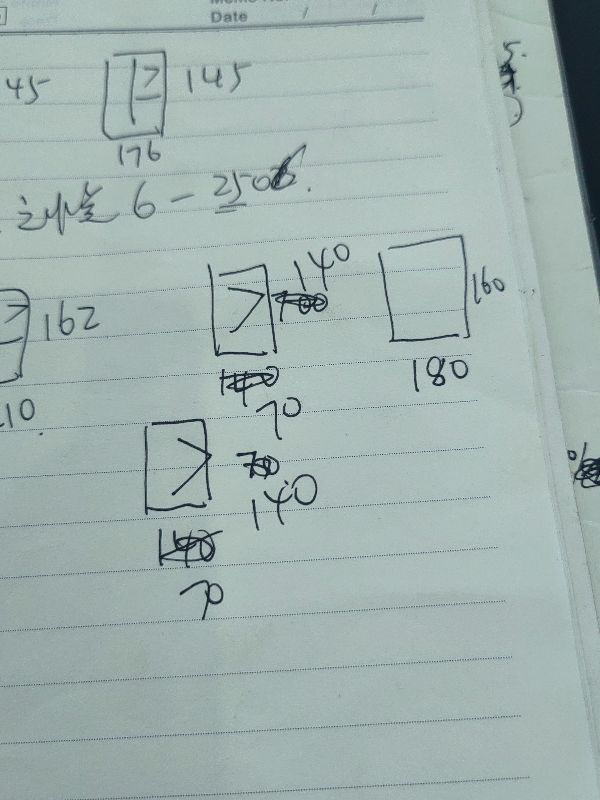 Date / /
45 145
176
6-250
162 140 160
10 70 180
140
70